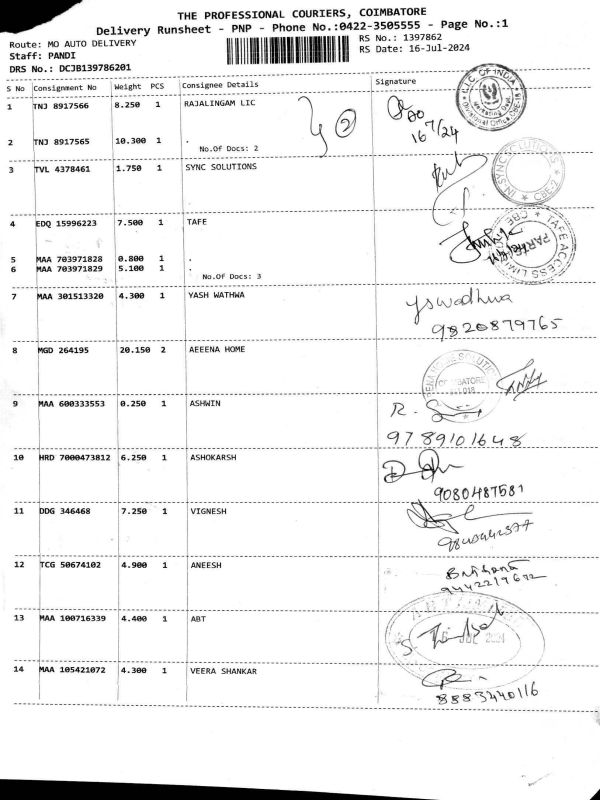 THE PROFESSIONAL COURIERS, COIMBATORE
Delivery Runsheet - PNP - Phone No.:0422-3505555 - Page No.:1
Route: MO AUTO DELIVERY
RS No.: 1397862
Staff: PANDI
RS Date: 16-Jul-2024
DRS No.: DCJB139786201
S No Consignment No Weight PCS Consignee Details Signature
1 TNJ 8917566 8.250 1 RAJALINGAM LIC
16 7/24
2 TNJ 8917565 10.300 1 .
No.Of Docs: 2
3 TVL 4378461 1.750 1 SYNC SOLUTIONS
4 EDQ 15996223 7.500 1 TAFE
5 MAA 703971828 0.800 1 .
6 MAA 703971829 5.100 1 .
No.Of Docs: 3
7 MAA 301513320 4.300 1 YASH WATHWA
yswadhwa
9820879765
8 MGD 264195 20.150 2 AEEENA HOME
9 MAA 600333553 0.250 1 ASHWIN
9789101648
10 HRD 7000473812 6.250 1 ASHOKARSH
9080487581
11 DDG 346468 7.250 1 VIGNESH
12 TCG 50674102 4.900 1 ANEESH
13 MAA 100716339 4.400 1 ABT
14 MAA 105421072 4.300 1 VEERA SHANKAR
8883440116